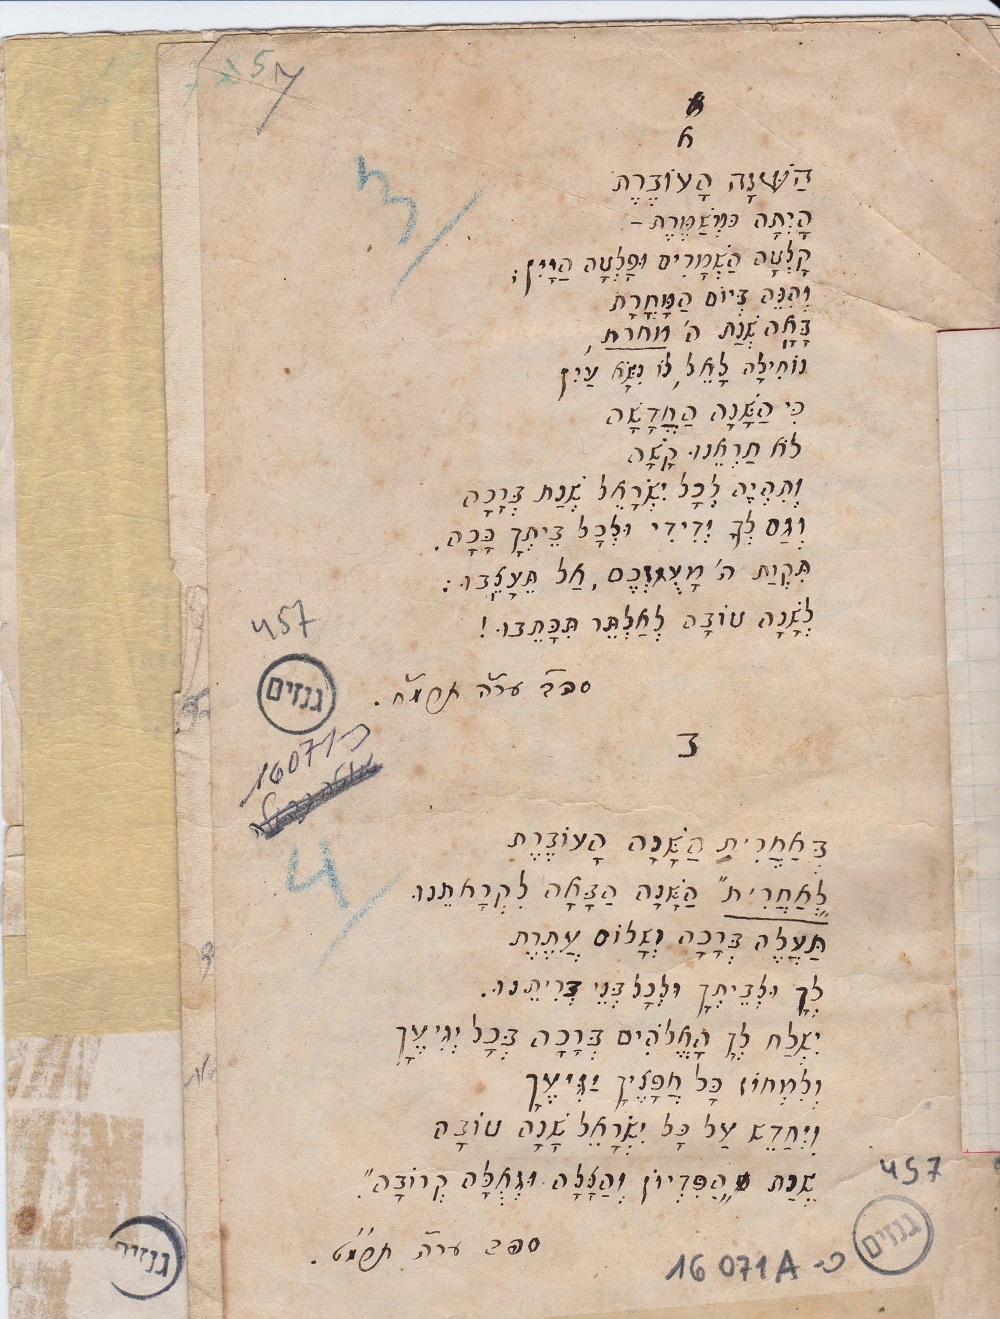 457
3
א
הַשָּׁנָה הָעוֹבֶרֶת
הָיְתָה כִּמְשַׁמֶּרֶת –
קָלְטָה הַשְּׁמָרִים וּפָלְטָה הַיָּיִן;
וְהִנֵּה בְּיוֹם הַמָּחֳרָת
בָּאָה שְׁנַת ה' מחרת,
נוֹחִילָה לָאֵל, לוֹ נִשָּׂא עַיִן
כִּי הַשָּׁנָה הַחֲדָשָׁה
לֹא תַרְאֵנוּ קָשָׁה
וְתִהְיֶה לְכָל יִשְׂרָאֵל שְׁנַת בְּרָכָה
וְגַם לְךָ יְדִידִי וּלְכָל בֵּיתְךָ כָּכָה.
תִּקְוַת ה' מָעֻזְּכֶם, אַל תֵּעָצֵבוּ:
לְשָׁנָה טוֹבָה לְאַלְתֵּר תִּכָּתֵבוּ!
ער"ה תרמ"ח.
457
גנזים
16071-כ
ב
4
בְּאַחֲרִית הַשָּׁנָה הָעוֹבֶרֶת
„לְאַחֲרִית" הַשָּׁנָה הַבָּאָה לִקְרָאתֵנוּ
תַּעֲלֶה בְּרָכָה וְשָׁלוֹם עֲתֶרֶת
לְךָ וּלְבֵיתְךָ וּלְכָל בְּנֵי בְרִיתֵנוּ.
יִשְׁלַח לְךָ הָאֱלֹהִים בְּרָכָה בְּכָל יְגִיעֶךָ
וְלִמְחוֹז כָּל חֲפָצֶיךָ יַגִּיעֶךָ
וִיחַדֵּשׁ עַל כָּל יִשְׂרָאֵל שָׁנָה טוֹבָה
שְׁנַת „הַפִּדְיוֹן וְהַצָּלָה וּגְאֻלָּה קְרוֹבָה".
ער"ה תרמ"ט.
457
גנזים
16071A-כ
גנזים